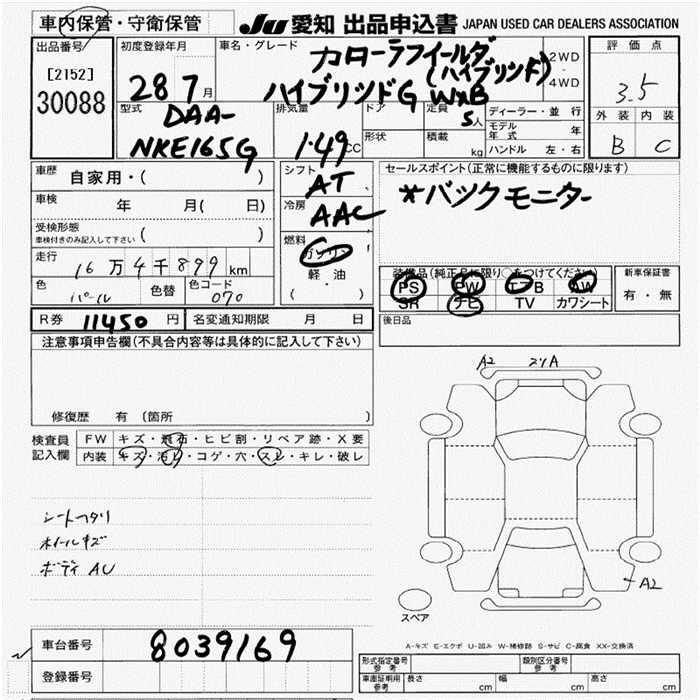 車内保管・守衛保管
JU 愛知 出品申込書 JAPAN USED CAR DEALERS ASSOCIATION
出品番号
[2152]
30088
初度登録年月
28 7月
車名・グレード
カローラフィールダ
(ハイブリッド)
ハイブリッドG W×B
2WD
・
4WD
評価点
3.5
外装 内装
B C
型式
DAA-
NKE165G
排気量
1.49 CC
ドア
形状
定員
5人
積載
kg
ディーラー・並行
モデル年式 年
ハンドル 左・右
車歴
自家用・( )
車検
年 月( 日)
受検形態
車検付きのみ記入して下さい ( )
走行
16万4千899km
色
パール
色替
色コード
070
シフト
AT
冷房
AAC
燃料
ガソリン
軽油
( ・ )
セールスポイント(正常に機能するものに限ります)
*バックモニター
装備品(純正品に限り○をつけてください)
PS PW エアB AW
SR ナビ TV カワシート
新車保証書
有・無
R券 11450円 名変通知期限 月 日
後日品
注意事項申告欄(不具合内容等は具体的に記入して下さい)
修復歴 有 〔箇所
検査員
記入欄
FW キズ・飛石・ヒビ割・リペア跡・X要
内装 キズ・汚レ・コゲ・穴・スレ・キレ・破レ
シートヘタリ
ホイールキズ
ボディ AU
A2
スリA
A2
スペア
A-キズ E-エクボ U-凹み W-補修跡 S-サビ C-腐食 XX-交換済
車台番号 8039169
登録番号
形式指定番号
参考
類別区分番号
参考
車庫証明用
参考
長さ cm 幅 cm 高さ cm